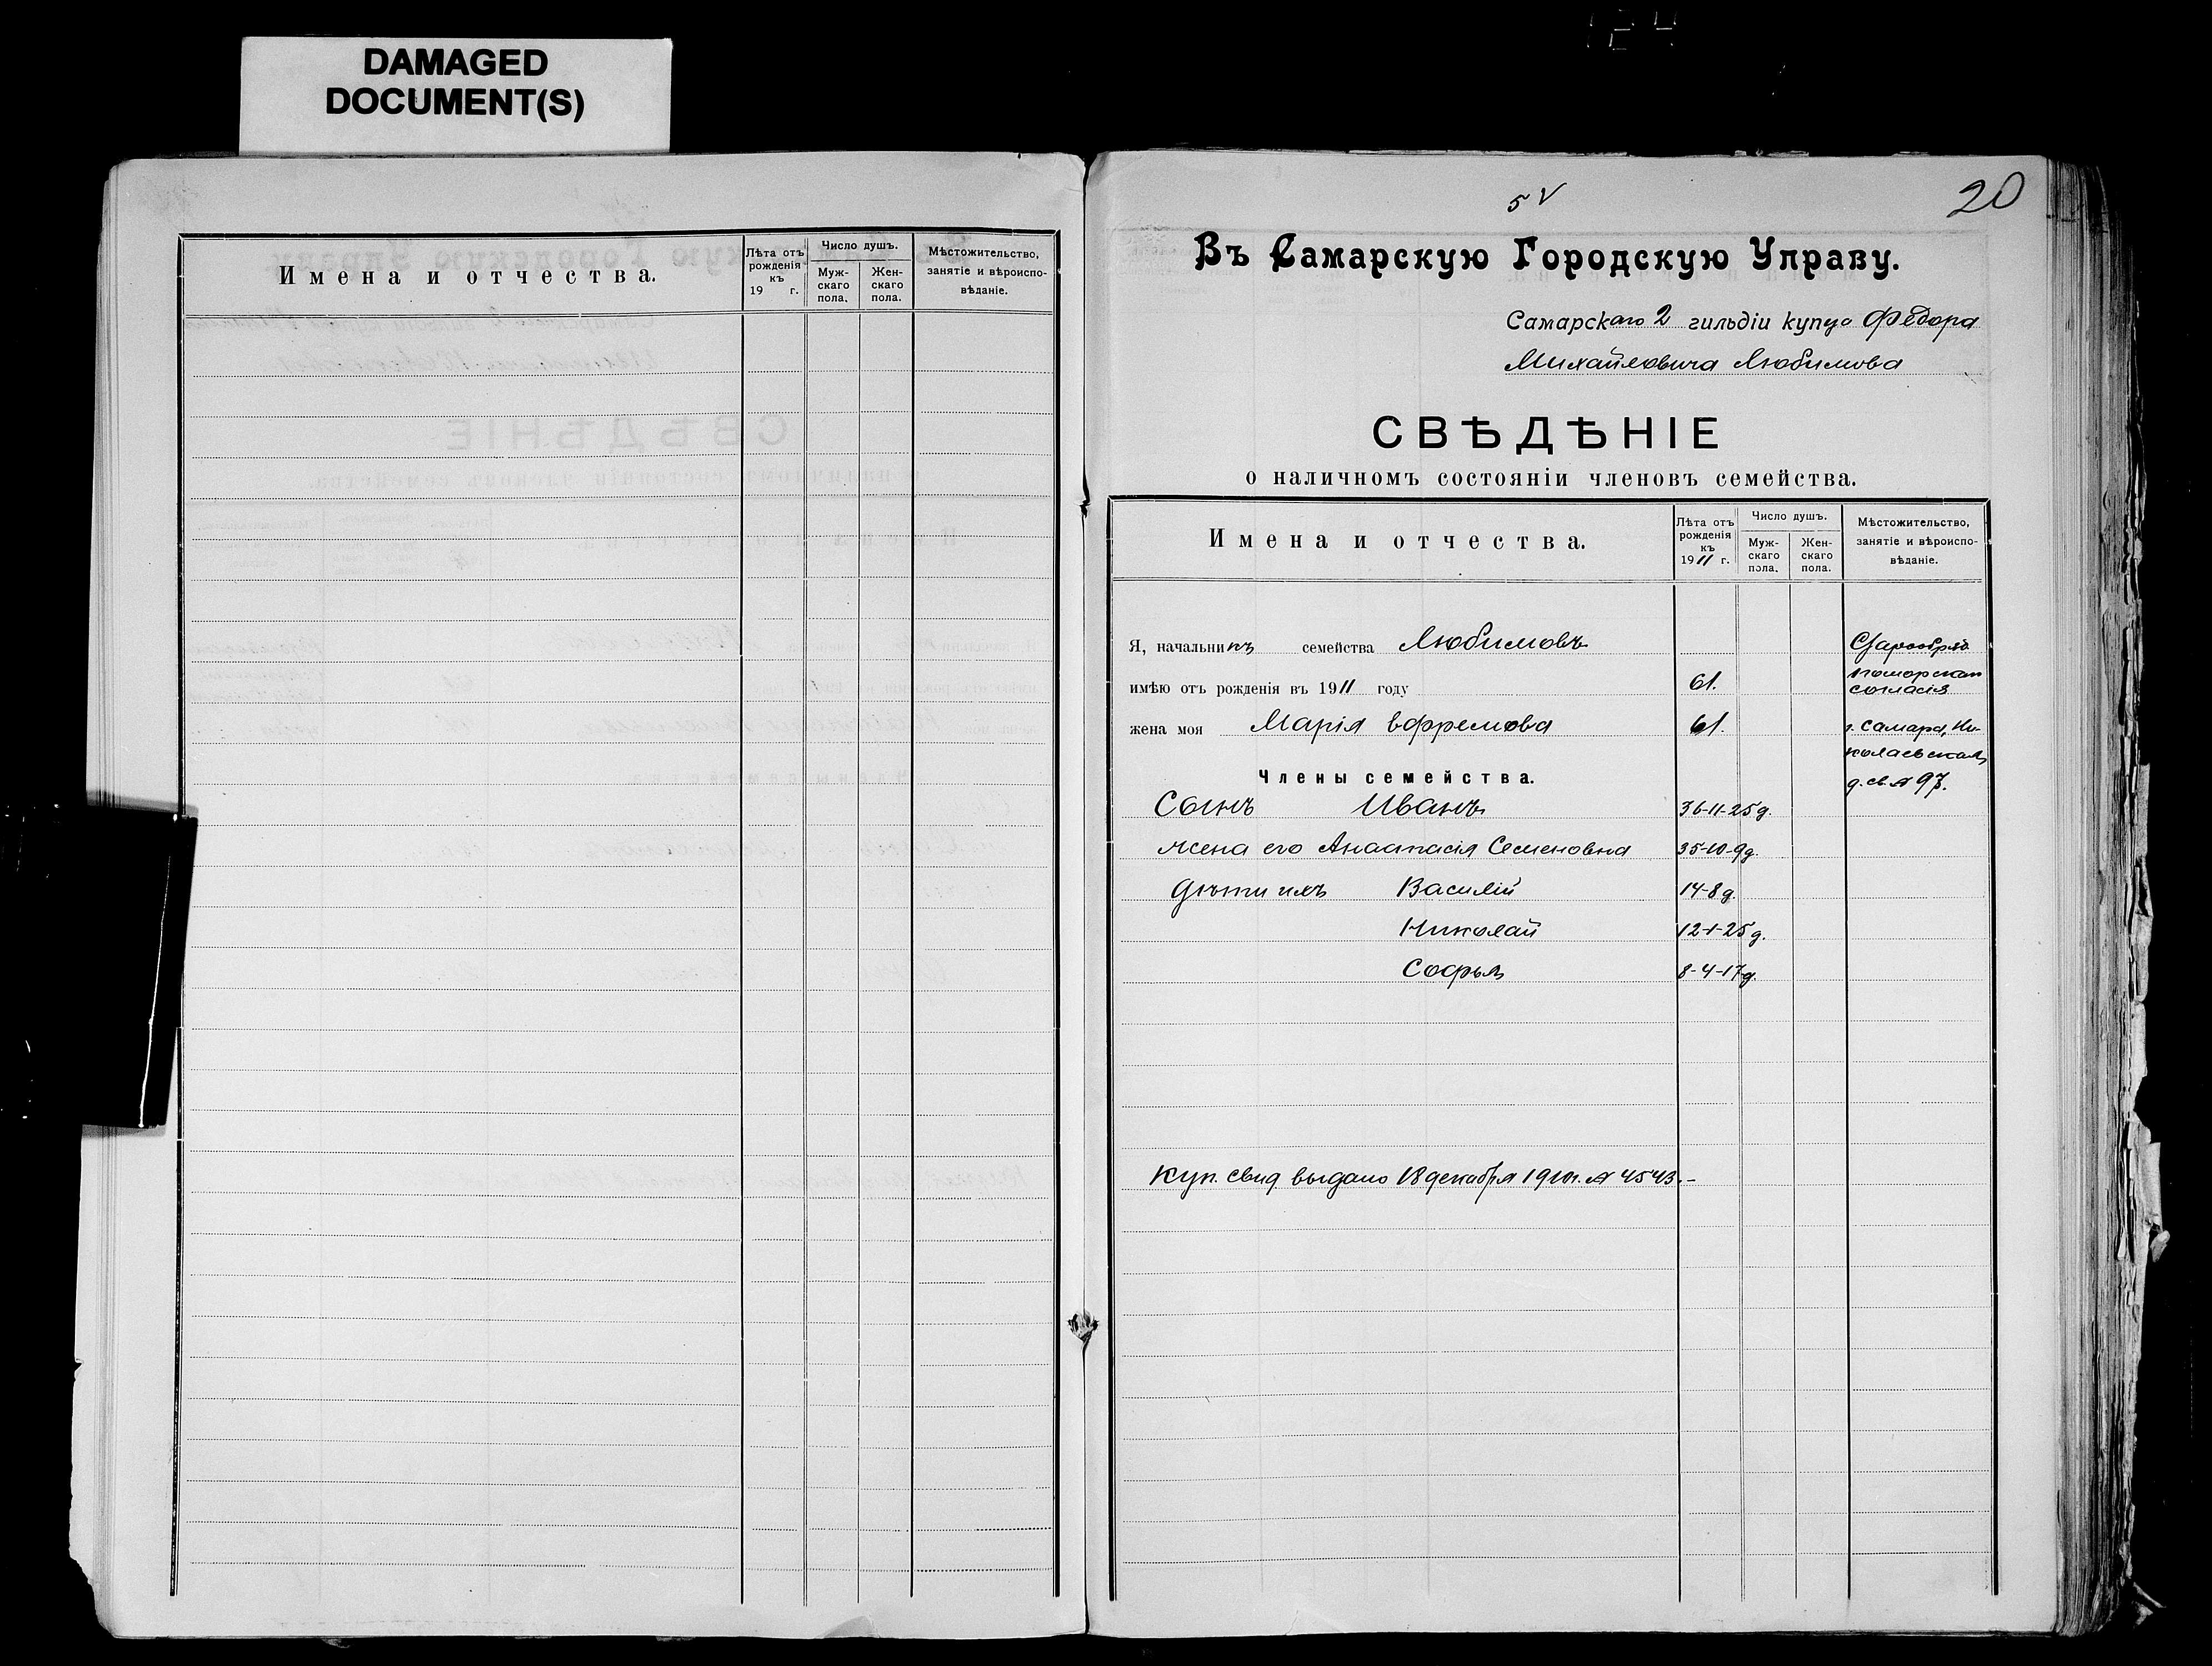 DAMAGED
DOCUMENT(S)
Имена и отчества.
Лѣта отъ рожденія къ 19 г.
Число душъ.
Мужскаго пола.
Женскаго пола.
Мѣстожительство, занятіе и вѣроисповѣданіе.
5 V
20
Въ Самарскую Городскую Управу.
Самарскаго 2 гильдіи купца Федора
Михайловича Любимова
СВѢДѢНІЕ
о наличномъ состояніи членовъ семейства.
Имена и отчества.
Лѣта отъ рожденія къ 1911 г.
Число душъ.
Муж-скаго пола.
Жен-скаго пола.
Мѣстожительство, занятіе и вѣроиспо-вѣданіе.
Я, начальникъ семейства Любимовъ Старообряд
имѣю отъ рожденія въ 1911 году 61. поморскаго согласія
жена моя Марія Ефремова 61. г. Самара, Ни-
колаевская,
Члены семейства. д. св. № 97.
Сынъ Иванъ 36-11-25 д.
жена его Анастасія Семеновна 35-10-9 д.
Дѣти ихъ Василій 14-8 д.
Николай 12-1-25 д.
Софья 8-4-17 д.
Куп. свид выдано 18 декабря 1910 г. № 4543.-